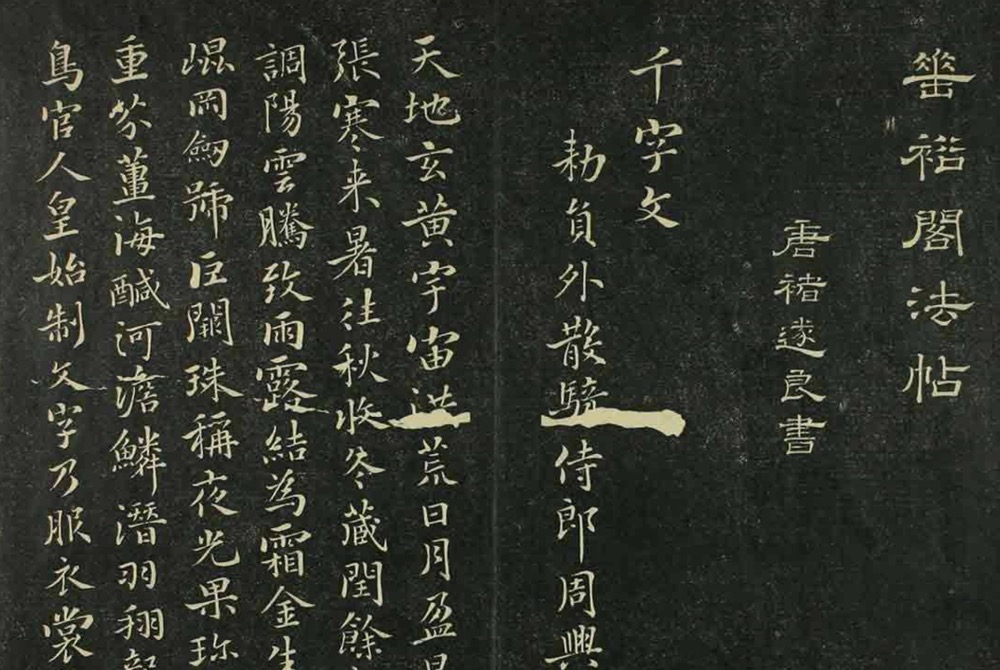 華裕閣法帖
唐褚遂良書
千字文
勑員外散騎侍郎周興
天地玄黃宇宙洪荒日月盈昃
張寒来暑往秋收冬藏閏餘
調陽雲騰致雨露結為霜金生
崐岡劒號巨闕珠稱夜光果珎
重芥薑海醎河澹鱗潛羽翔
鳥官人皇始制文字乃服衣裳